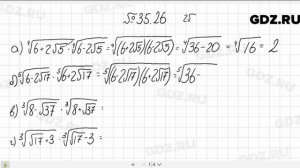 №35.26 25 GDZ.RU
а) ⁴√(6+2√5) · ⁴√(6-2√5) = ⁴√((6+2√5)(6-2√5)) = ⁴√(36-20) = ⁴√16 = 2
б) ⁵√(6-2√17) · ⁵√(6+2√17) = ⁵√((6-2√17)(6+2√17)) = ⁵√(36-
в) ³√(8-√37) · ³√(8+√37) =
г) ³√(√17+3) · ³√(√17-3) =
GDZ.RU